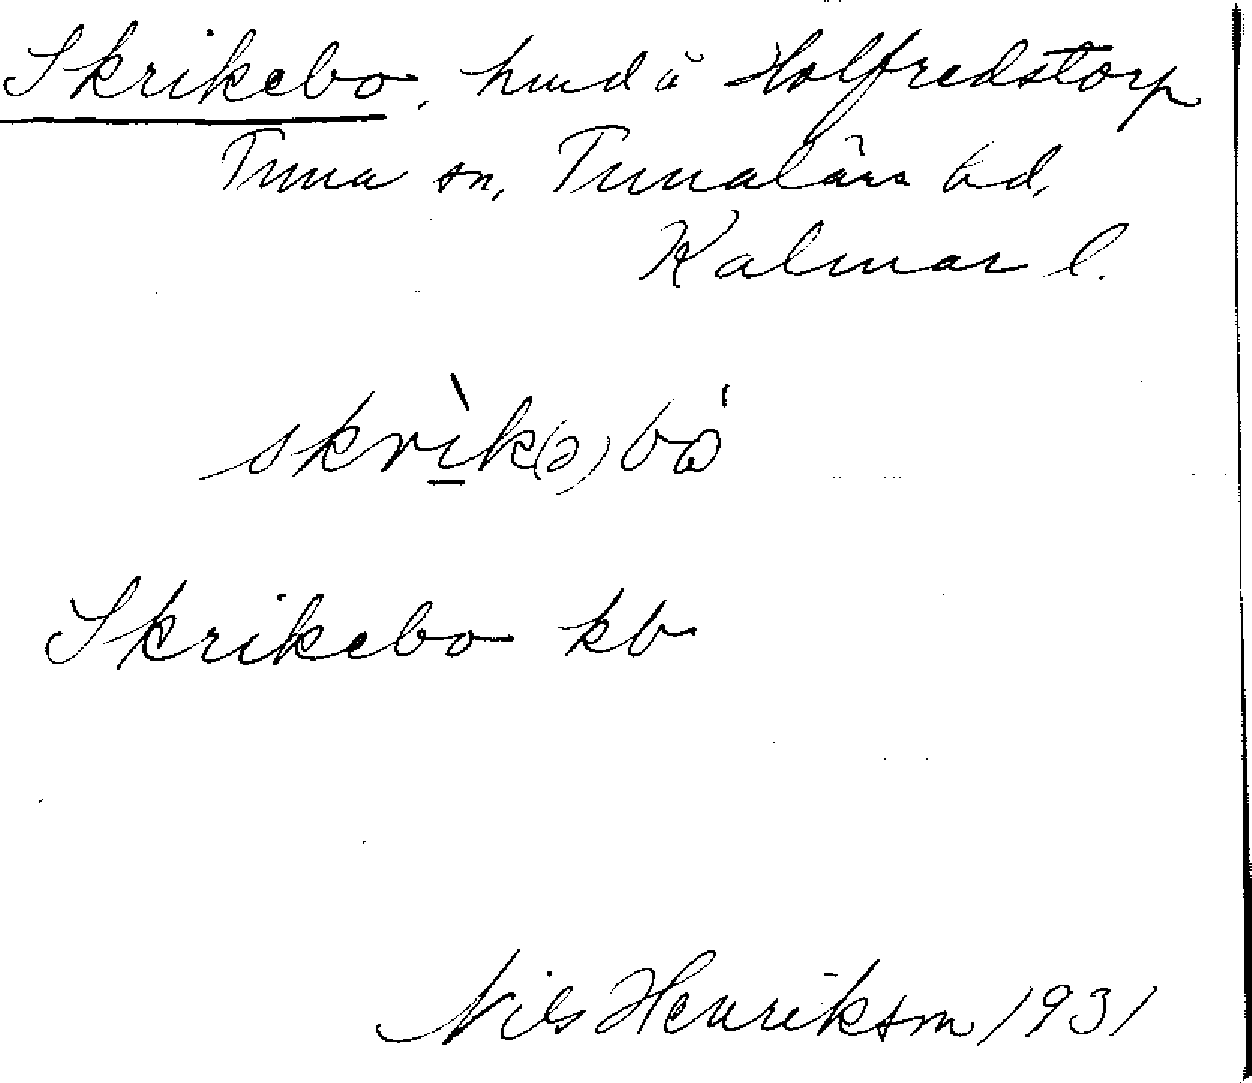 Skrikebo, hmd å Holfredstorp
Tuna sn, Tunaläns hd,
Kalmar l.
skrìk(ə)bå
Skrikebo kb
Nils Henrikson 1931